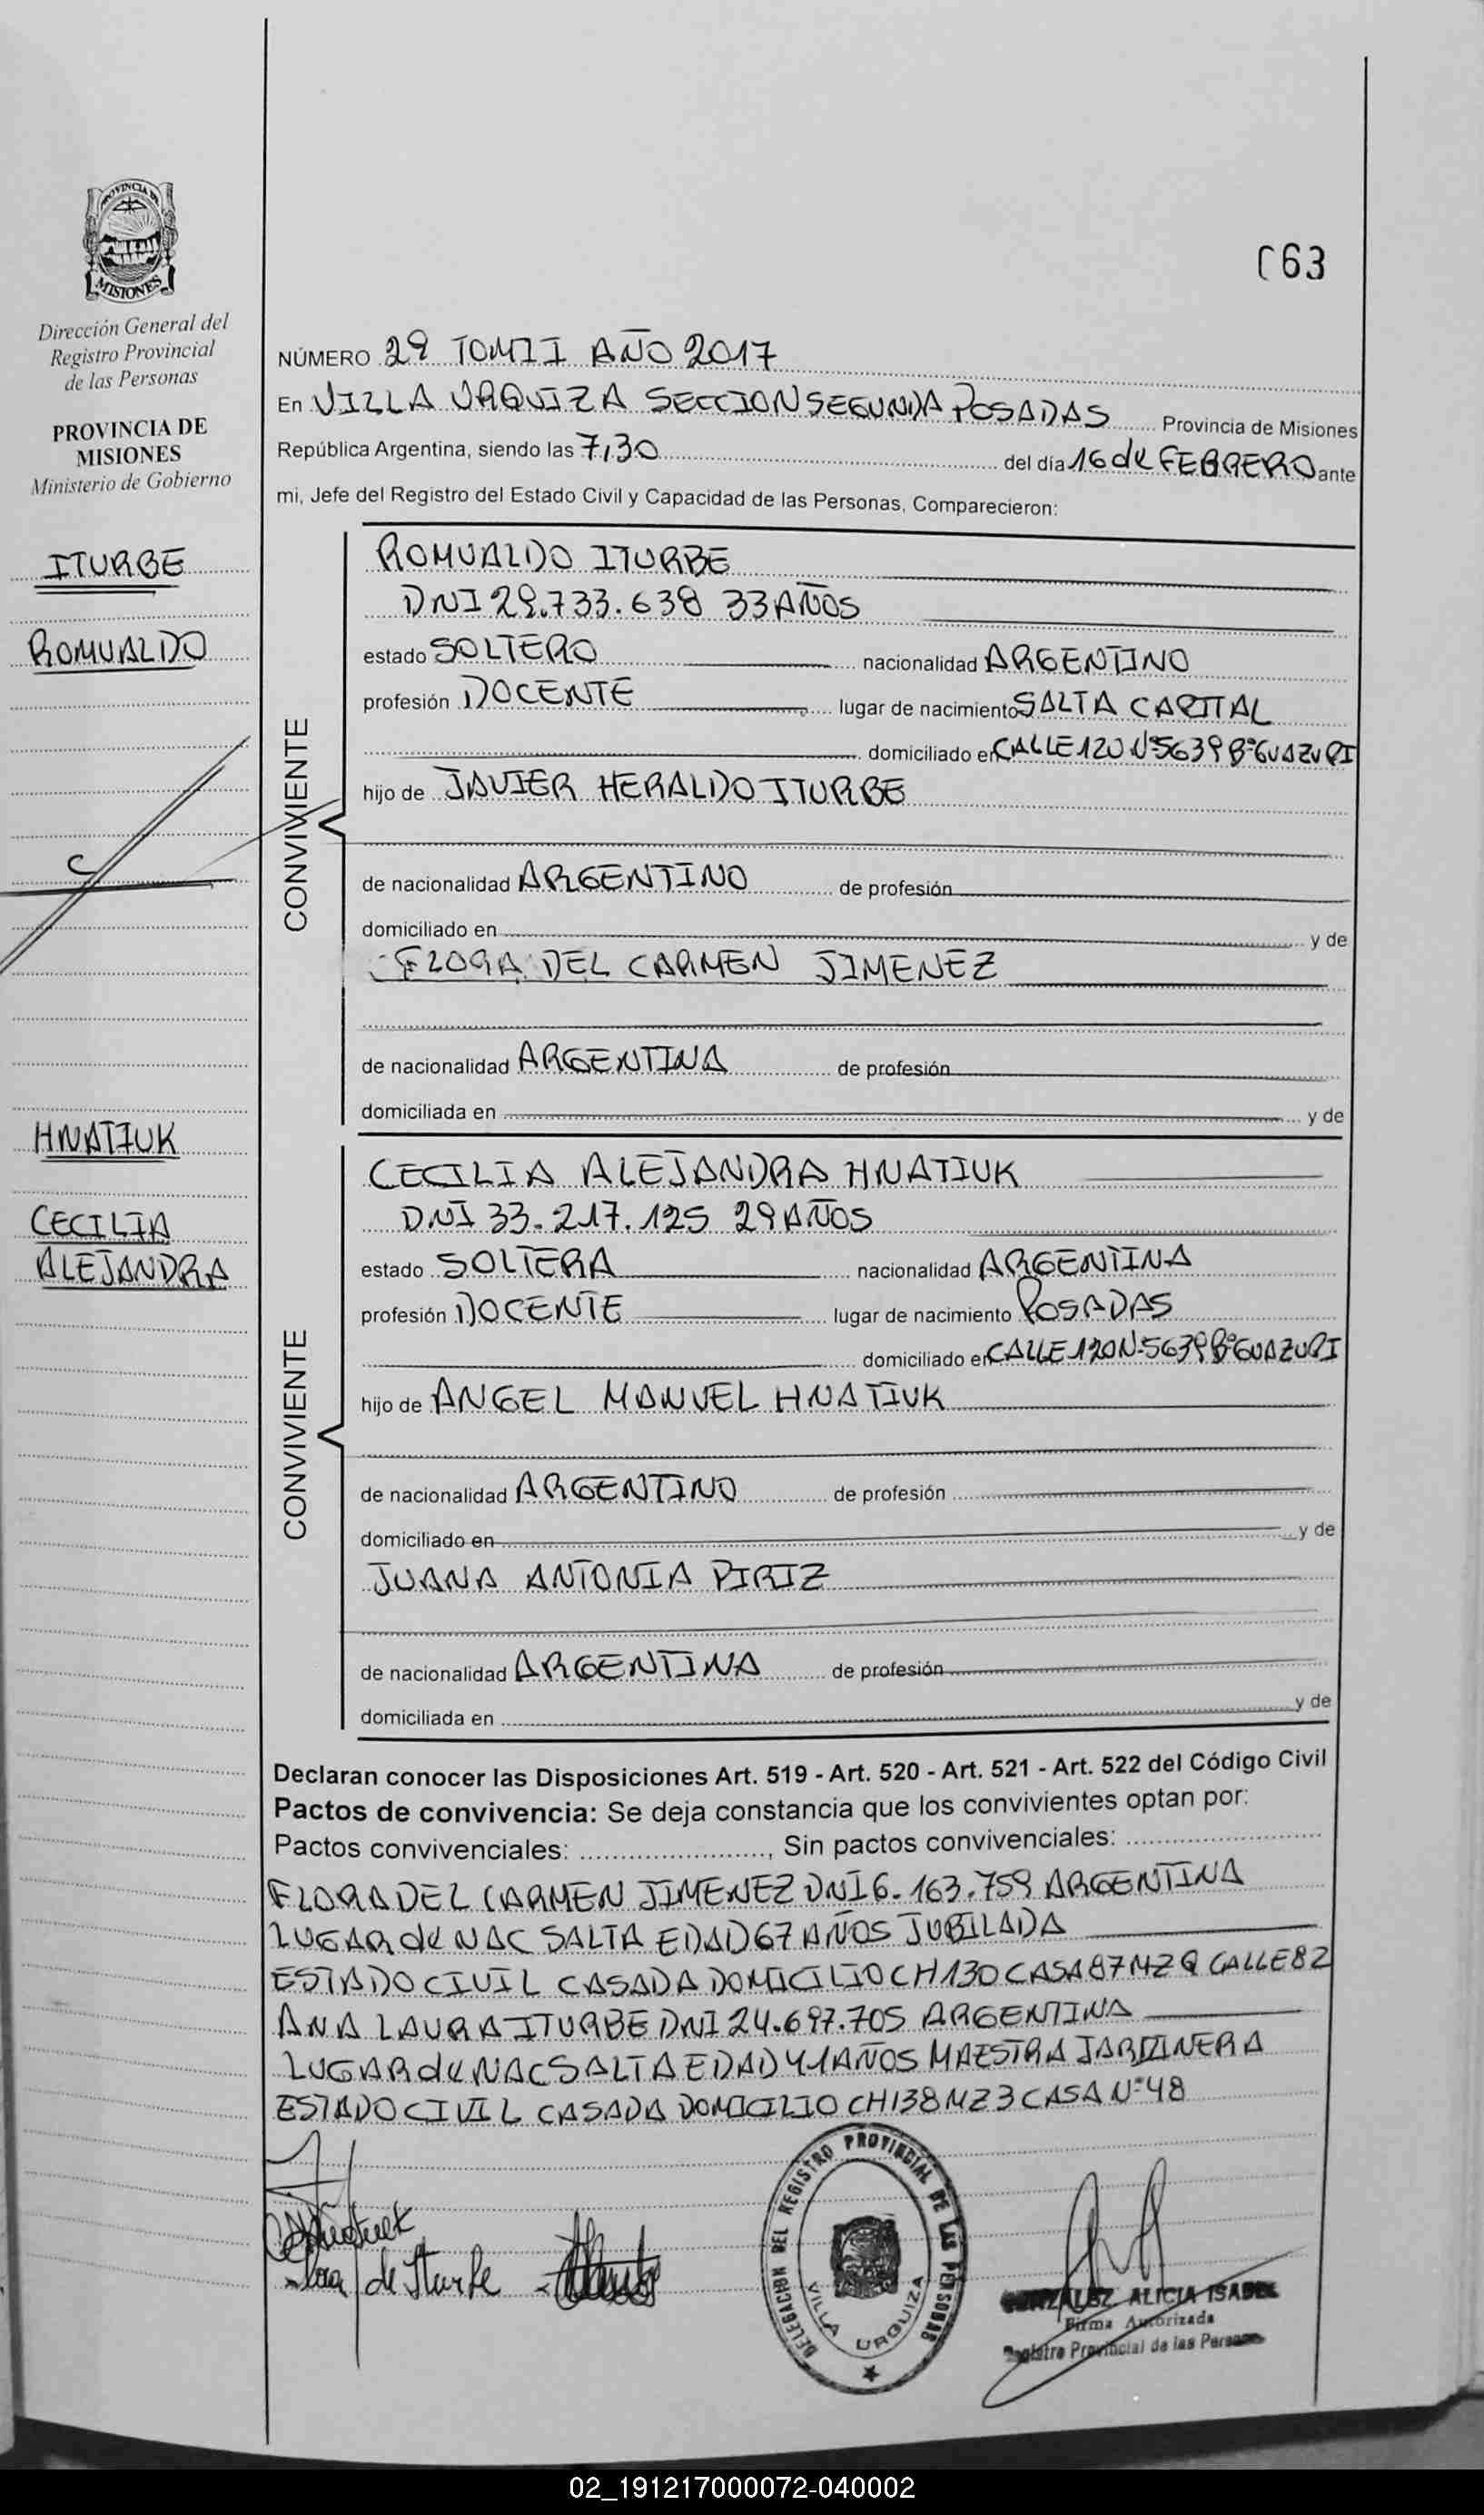 PROVINCIA DE
MISIONES
Dirección General del
Registro Provincial
de las Personas
PROVINCIA DE
MISIONES
Ministerio de Gobierno
ITURBE
ROMUALDO
HNATIUK
CECILIA
ALEJANDRA
C63
NÚMERO 29 TOMO I AÑO 2017
En VILLA URQUIZA SECCION SEGUNDA POSADAS Provincia de Misiones
República Argentina, siendo las 7,30 del día 16 de FEBRERO ante
mi, Jefe del Registro del Estado Civil y Capacidad de las Personas, Comparecieron:
CONVIVIENTE
ROMUALDO ITURBE
DNI 29.733.638 33 AÑOS
estado SOLTERO nacionalidad ARGENTINO
profesión DOCENTE lugar de nacimiento SALTA CAPITAL
domiciliado en CALLE 120 Nº 5639 Bº GUAZUPI
hijo de JAVIER HERALDO ITURBE
de nacionalidad ARGENTINO de profesión
domiciliado en y de
FLORA DEL CARMEN JIMENEZ
de nacionalidad ARGENTINA de profesión
domiciliada en y de
CONVIVIENTE
CECILIA ALEJANDRA HNATIUK
DNI 33.217.125 29 AÑOS
estado SOLTERA nacionalidad ARGENTINA
profesión DOCENTE lugar de nacimiento POSADAS
domiciliado en CALLE 120 Nº 5639 Bº GUAZUPI
hijo de ANGEL MANUEL HNATIUK
de nacionalidad ARGENTINO de profesión
domiciliado en y de
JUANA ANTONIA PIRIZ
de nacionalidad ARGENTINA de profesión
domiciliada en y de
Declaran conocer las Disposiciones Art. 519 - Art. 520 - Art. 521 - Art. 522 del Código Civil
Pactos de convivencia: Se deja constancia que los convivientes optan por:
Pactos convivenciales: ......................, Sin pactos convivenciales: ......................
FLORA DEL CARMEN JIMENEZ DNI 6.163.759 ARGENTINA
LUGAR de NAC SALTA EDAD 67 AÑOS JUBILADA
ESTADO CIVIL CASADA DOMICILIO CH 130 CASA 87 MZ Q CALLE 82
ANA LAURA ITURBE DNI 24.697.705 ARGENTINA
LUGAR de NAC SALTA EDAD 41 AÑOS MAESTRA JARDINERA
ESTADO CIVIL CASADA DOMICILIO CH 138 MZ 3 CASA Nº 48
CHnatiuk
de Iturbe
DELEGACION DEL REGISTRO PROVINCIAL DE LAS PERSONAS
VILLA URQUIZA
GONZALEZ ALICIA ISABEL
Firma Autorizada
Registro Provincial de las Personas
02_191217000072-040002